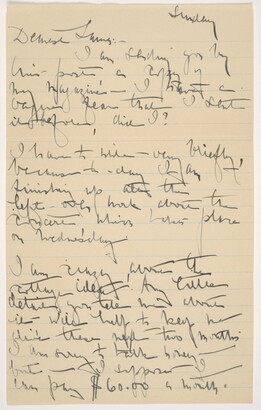 Sunday
Dearest
I am sending you by
this post a copy of
my magazine - I have a
vague fear that I sent
it before, did I?
I have to write very briefly,
because to-day I am
finishing up all the
left-over work before the
leaves this place
on Wednesday.
I am crazy about the
cottage idea! Any little
details you tell me about
it will help to keep me
alive these next two months
I am sorry to talk money
but - I suppose I
can pay $60.00 a month.